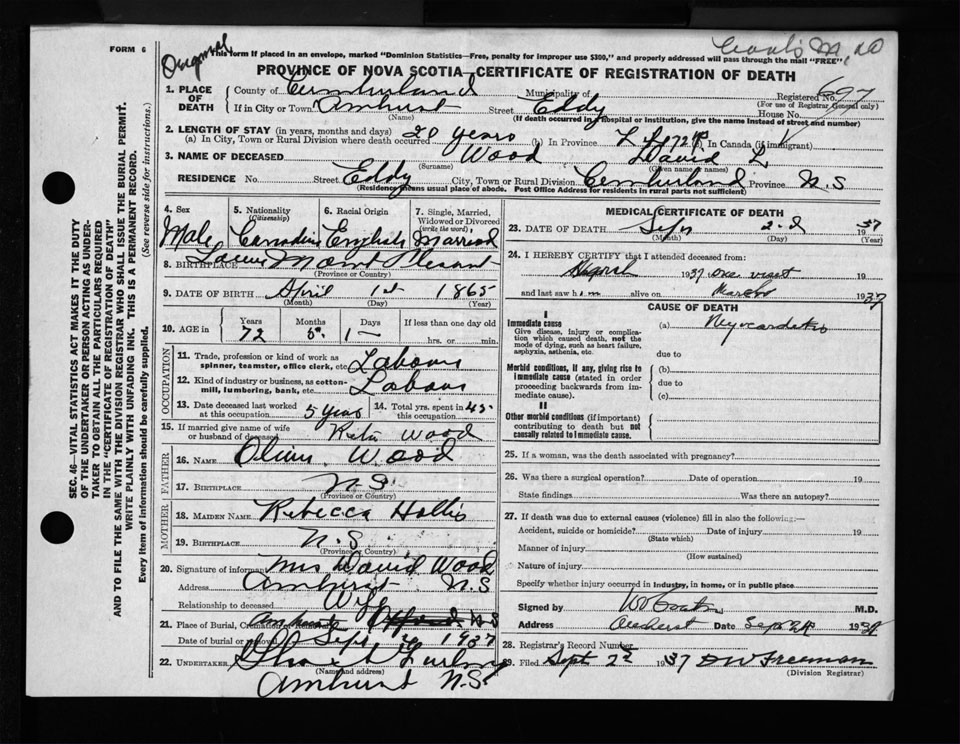 FORM 6
Original
This form if placed in an envelope, marked "Dominion Statistics—Free, penalty for improper use $300," and properly addressed will pass through the mail "FREE",
PROVINCE OF NOVA SCOTIA—CERTIFICATE OF REGISTRATION OF DEATH
1. PLACE OF DEATH County of Cumberland Municipality of Registered No. 697
(For use of Registrar General only)
If in City or Town Amhurst Street Eddy House No.
(Name) (If death occurred in a hospital or institution, give the name instead of street and number)
2. LENGTH OF STAY (in years, months and days)
(a) In City, Town or Rural Division where death occurred 20 years (b) In Province (c) In Canada (if immigrant)
3. NAME OF DECEASED Wood David L
(Surname) (Given name or names)
RESIDENCE No. Street Eddy City, Town or Rural Division Cumberland Province N.S
(Residence means usual place of abode. Post Office Address for residents in rural parts not sufficient)
4. Sex Male
5. Nationality (Citizenship) Canadian
6. Racial Origin English
7. Single, Married, Widowed or Divorced (write the word) Married
8. BIRTHPLACE Mount Plesant
(Province or Country)
9. DATE OF BIRTH April 1st 1865
(Month) (Day) (Year)
10. AGE in Years 72 Months 5 Days 1 If less than one day old hrs. or min.
OCCUPATION
11. Trade, profession or kind of work as spinner, teamster, office clerk, etc. Labour
12. Kind of industry or business, as cotton-mill, lumbering, bank, etc. Labour
13. Date deceased last worked at this occupation 5 years 14. Total yrs. spent in this occupation 45
15. If married give name of wife or husband of deceased Wood
FATHER
16. NAME Wood
17. BIRTHPLACE N.S
(Province or Country)
MOTHER
18. MAIDEN NAME Rebecca Hollis
19. BIRTHPLACE N.S
(Province or Country)
20. Signature of informant Mrs David Wood
Address Amhurst N.S
Relationship to deceased Wife
21. Place of Burial, Cremation or Removal N.S
Date of burial or removal Sept 1937
22. UNDERTAKER Furlong
(Name and address)
Amhurst N.S.
MEDICAL CERTIFICATE OF DEATH
23. DATE OF DEATH Sept 2d 1937
(Month) (Day) (Year)
24. I HEREBY CERTIFY that I attended deceased from:
March 1937 one visit 19
and last saw him alive on March 1937
CAUSE OF DEATH
I
Immediate cause
Give disease, injury or complication which caused death, not the mode of dying, such as heart failure, asphyxia, asthenia, etc.
(a) Myocarditis
due to
Morbid conditions, if any, giving rise to immediate cause (stated in order proceeding backwards from immediate cause).
(b)
due to
(c)
II
Other morbid conditions (if important) contributing to death but not causally related to immediate cause.
25. If a woman, was the death associated with pregnancy?
26. Was there a surgical operation? Date of operation 19
State findings Was there an autopsy?
27. If death was due to external causes (violence) fill in also the following:—
Accident, suicide or homicide? Date of injury 19
(State which)
Manner of injury
(How sustained)
Nature of injury
Specify whether injury occurred in industry, in home, or in public place
Signed by M.D.
Address Amherst Date Sept 2 1937
28. Registrar's Record Number
29. Filed Sept 2 1937 D W Freeman
(Division Registrar)
SEC. 46—VITAL STATISTICS ACT MAKES IT THE DUTY OF THE UNDERTAKER OR PERSON ACTING AS UNDERTAKER TO OBTAIN ALL THE PARTICULARS REQUIRED IN THE "CERTIFICATE OF REGISTRATION OF DEATH" AND TO FILE THE SAME WITH THE DIVISION REGISTRAR WHO SHALL ISSUE THE BURIAL PERMIT.
WRITE PLAINLY WITH UNFADING INK. THIS IS A PERMANENT RECORD.
Every item of information should be carefully supplied. (See reverse side for instructions.)